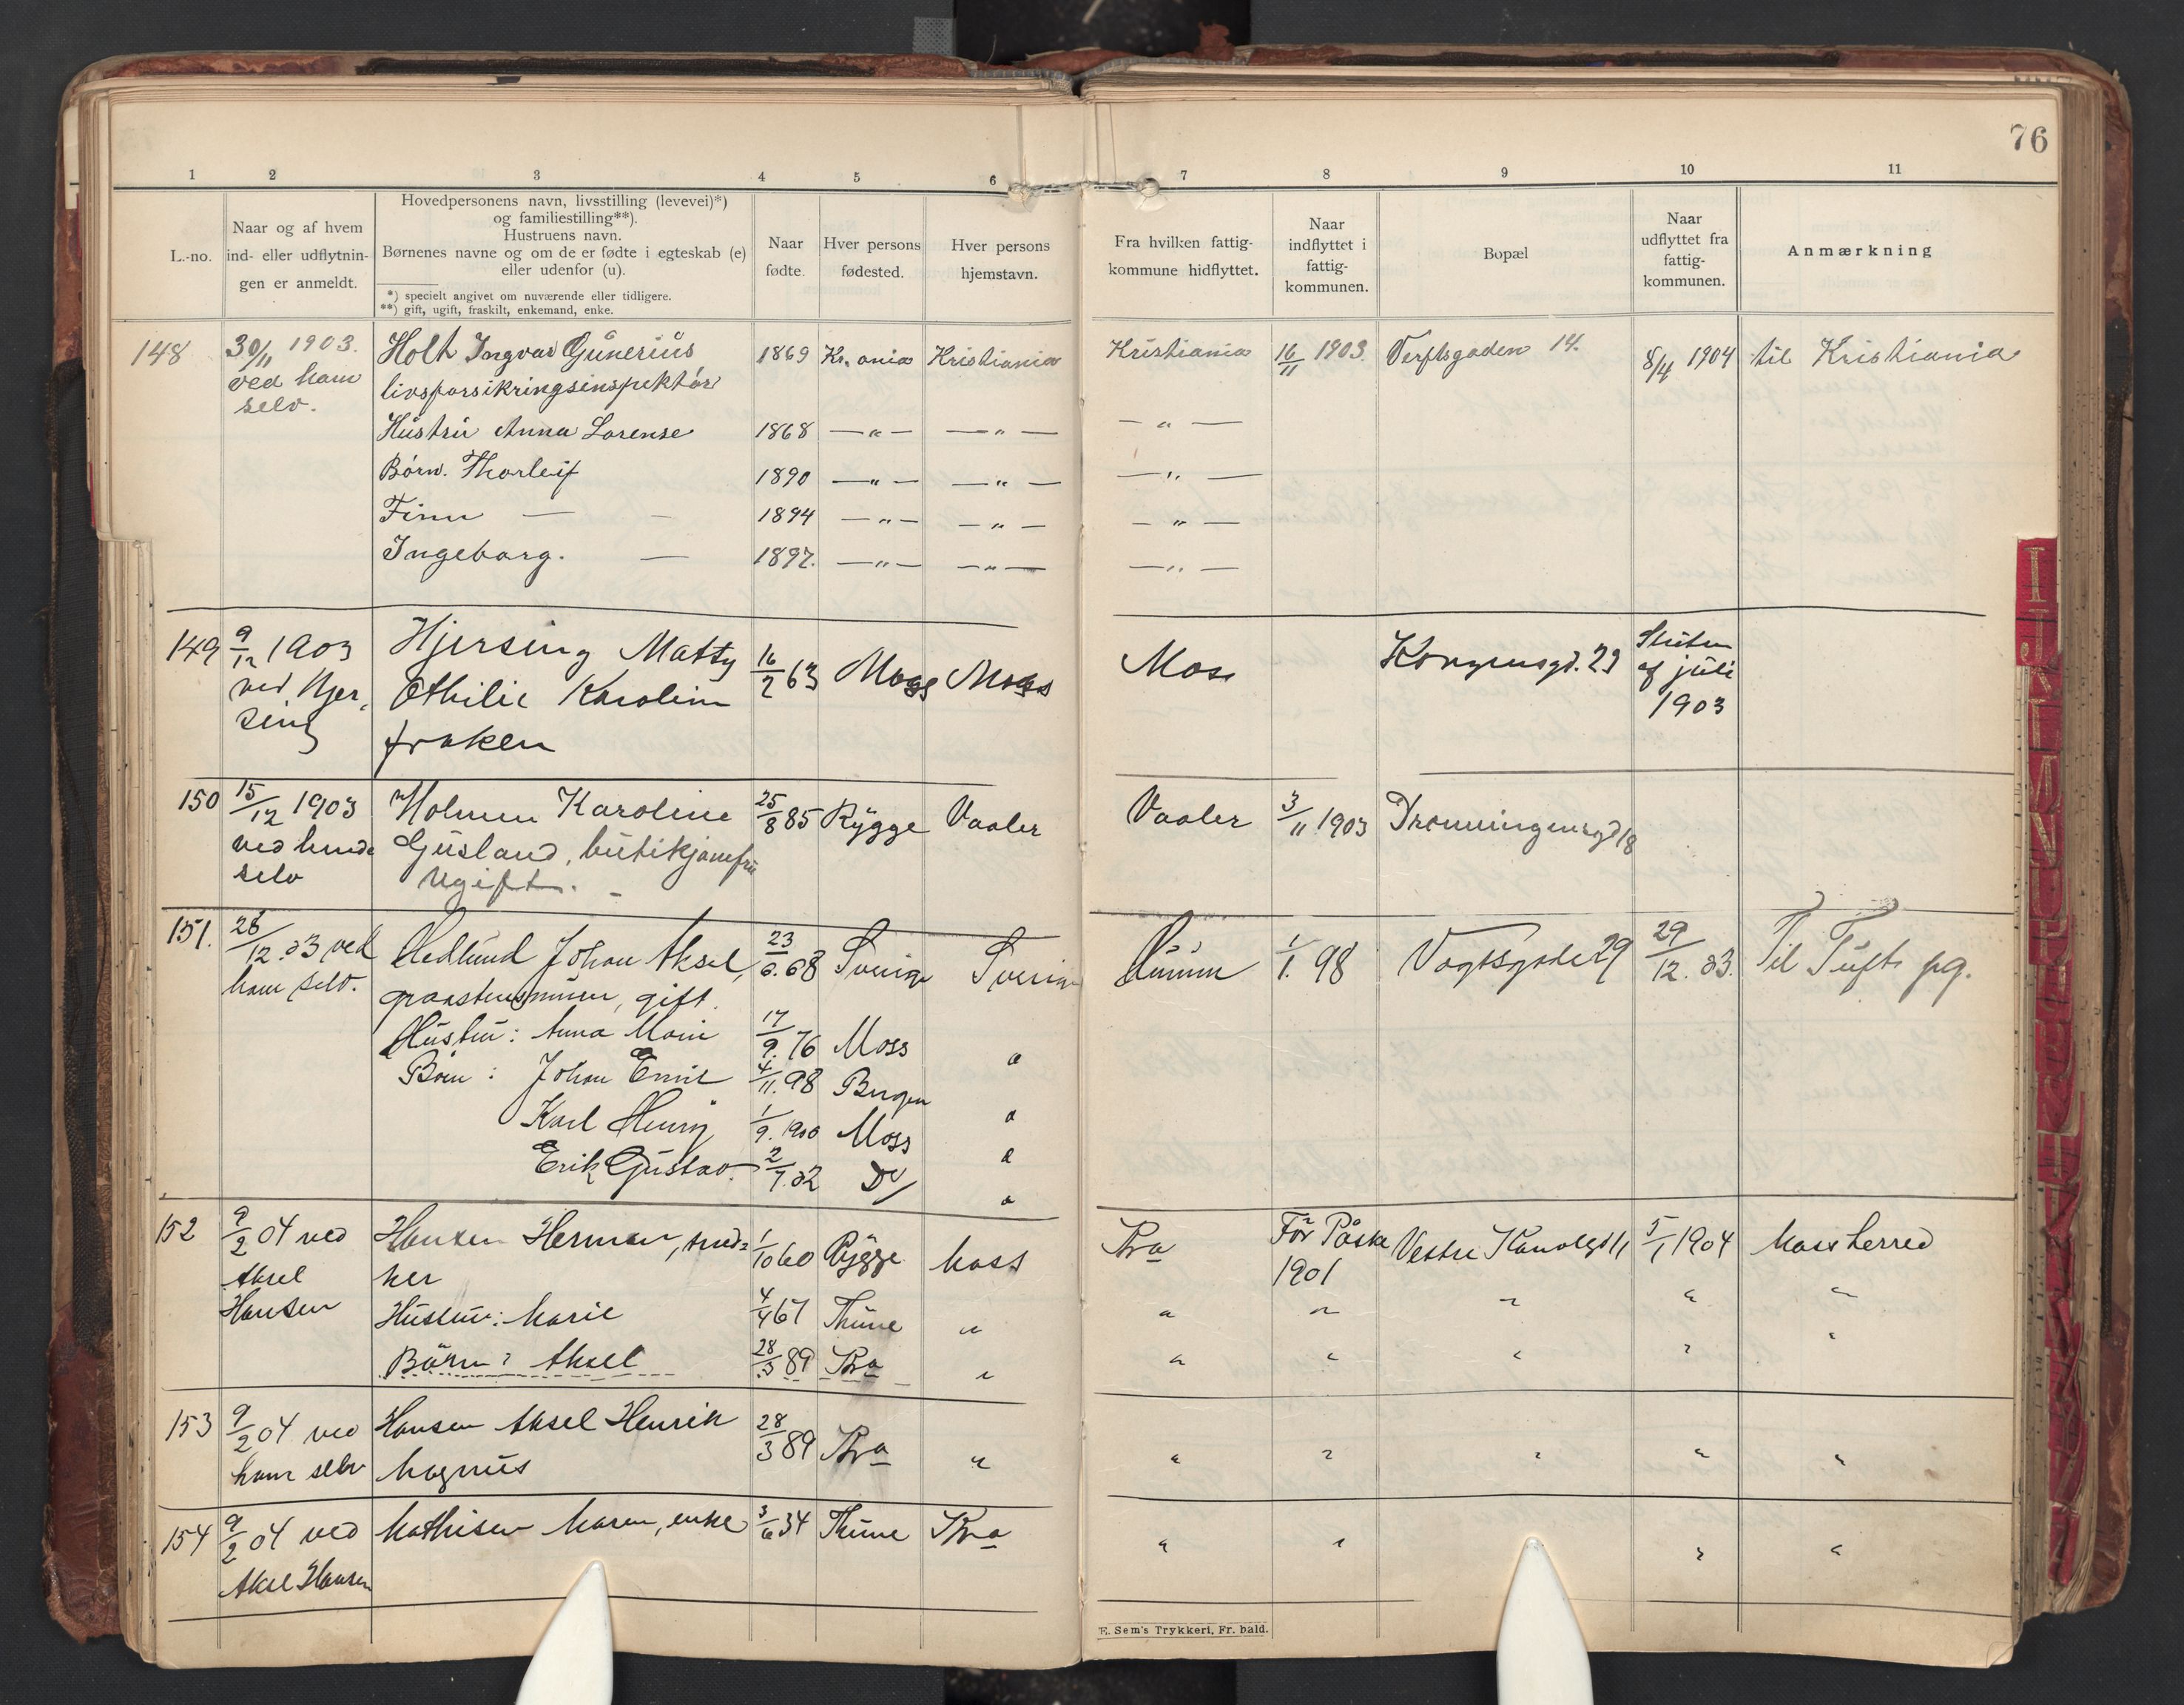 76
1 2 3 4 5 6 7 8 9 10 11
L.-no.
Naar og af hvem
ind- eller udflytnin-
gen er anmeldt.
Hovedpersonens navn, livsstilling (levevei)*)
og familiestilling**).
Hustruens navn.
Børnenes navne og om de er fødte i egteskab (e)
eller udenfor (u).
*) specielt angivet om nuværende eller tidligere.
**) gift, ugift, fraskilt, enkemand, enke.
Naar
fødte.
Hver persons
fødested.
Hver persons
hjemstavn.
Fra hvilken fattig-
kommune hidflyttet.
Naar
indflyttet i
fattig-
kommunen.
Bopæl
Naar
udflyttet fra
fattig-
kommunen.
Anmærkning
148 30/11 1903. Holt Ingvar Gunerius 1869 Kr.ania Kristiania Kristiania 16/11 1903. Verftsgaden 14. 8/4 1904 til Kristiania
ved ham livsforsikringsinspektør
selv.
Hustru Anna Lorense 1868 — " — — " — — " —
Børn. Thorleif 1890 — " — — " — — " —
Finn — — 1894 — " — — " — — " —
Ingeborg. — 1897. — " — — " — — " —
149 9/12 1903 Hjersing Matty 16/2 63 Moss Moss Moss Kongensgd. 29 Slutten
ved Hjer- Othilie Karoline af juli
sing frøken 1903
150 15/12 1903 Holmen Karoline 25/8 85 Rygge Vaaler Vaaler 3/11 1903 Dronningensgd 18
ved hende Gusland, butikjomfru
selv Ugift.
151. 28/12.03 ved Hedlund Johan Aksel, 23/6.68 Sverige Sverige 1/1. 98 Vogtsgade 29 29/12.03. Til Tufte pg.
ham selv. graastensmurer, gift.
Hustru: Anna Marie 17/9.76 Moss "
Børn: Johan Emil 4/11.98 Bergen "
Karl Henry 1/9.1900 Moss "
Erik Gustav. 2/7.02 Do "
152 9/2 04 ved Hansen Herman, sned= 1/10 60 Rygge Moss Kra Før Påske Vestre Kanalgd 11 5/1 1904 Moss herred
Aksel ker 1901
Hansen Hustru: Marie 4/4 67 Thune " " " " " "
Børn: Aksel 28/3 89 Kra " " " " " "
153 9/2 04 ved Hansen Aksel Henrik 28/3 89 Kra " " " " " "
ham selv Magnus
154 9/2 04 ved Mathisen Maren, enke 3/6 34 Thune Kra " " " "
Aksel Hansen
E. Sem's Trykkeri, Fr. hald.